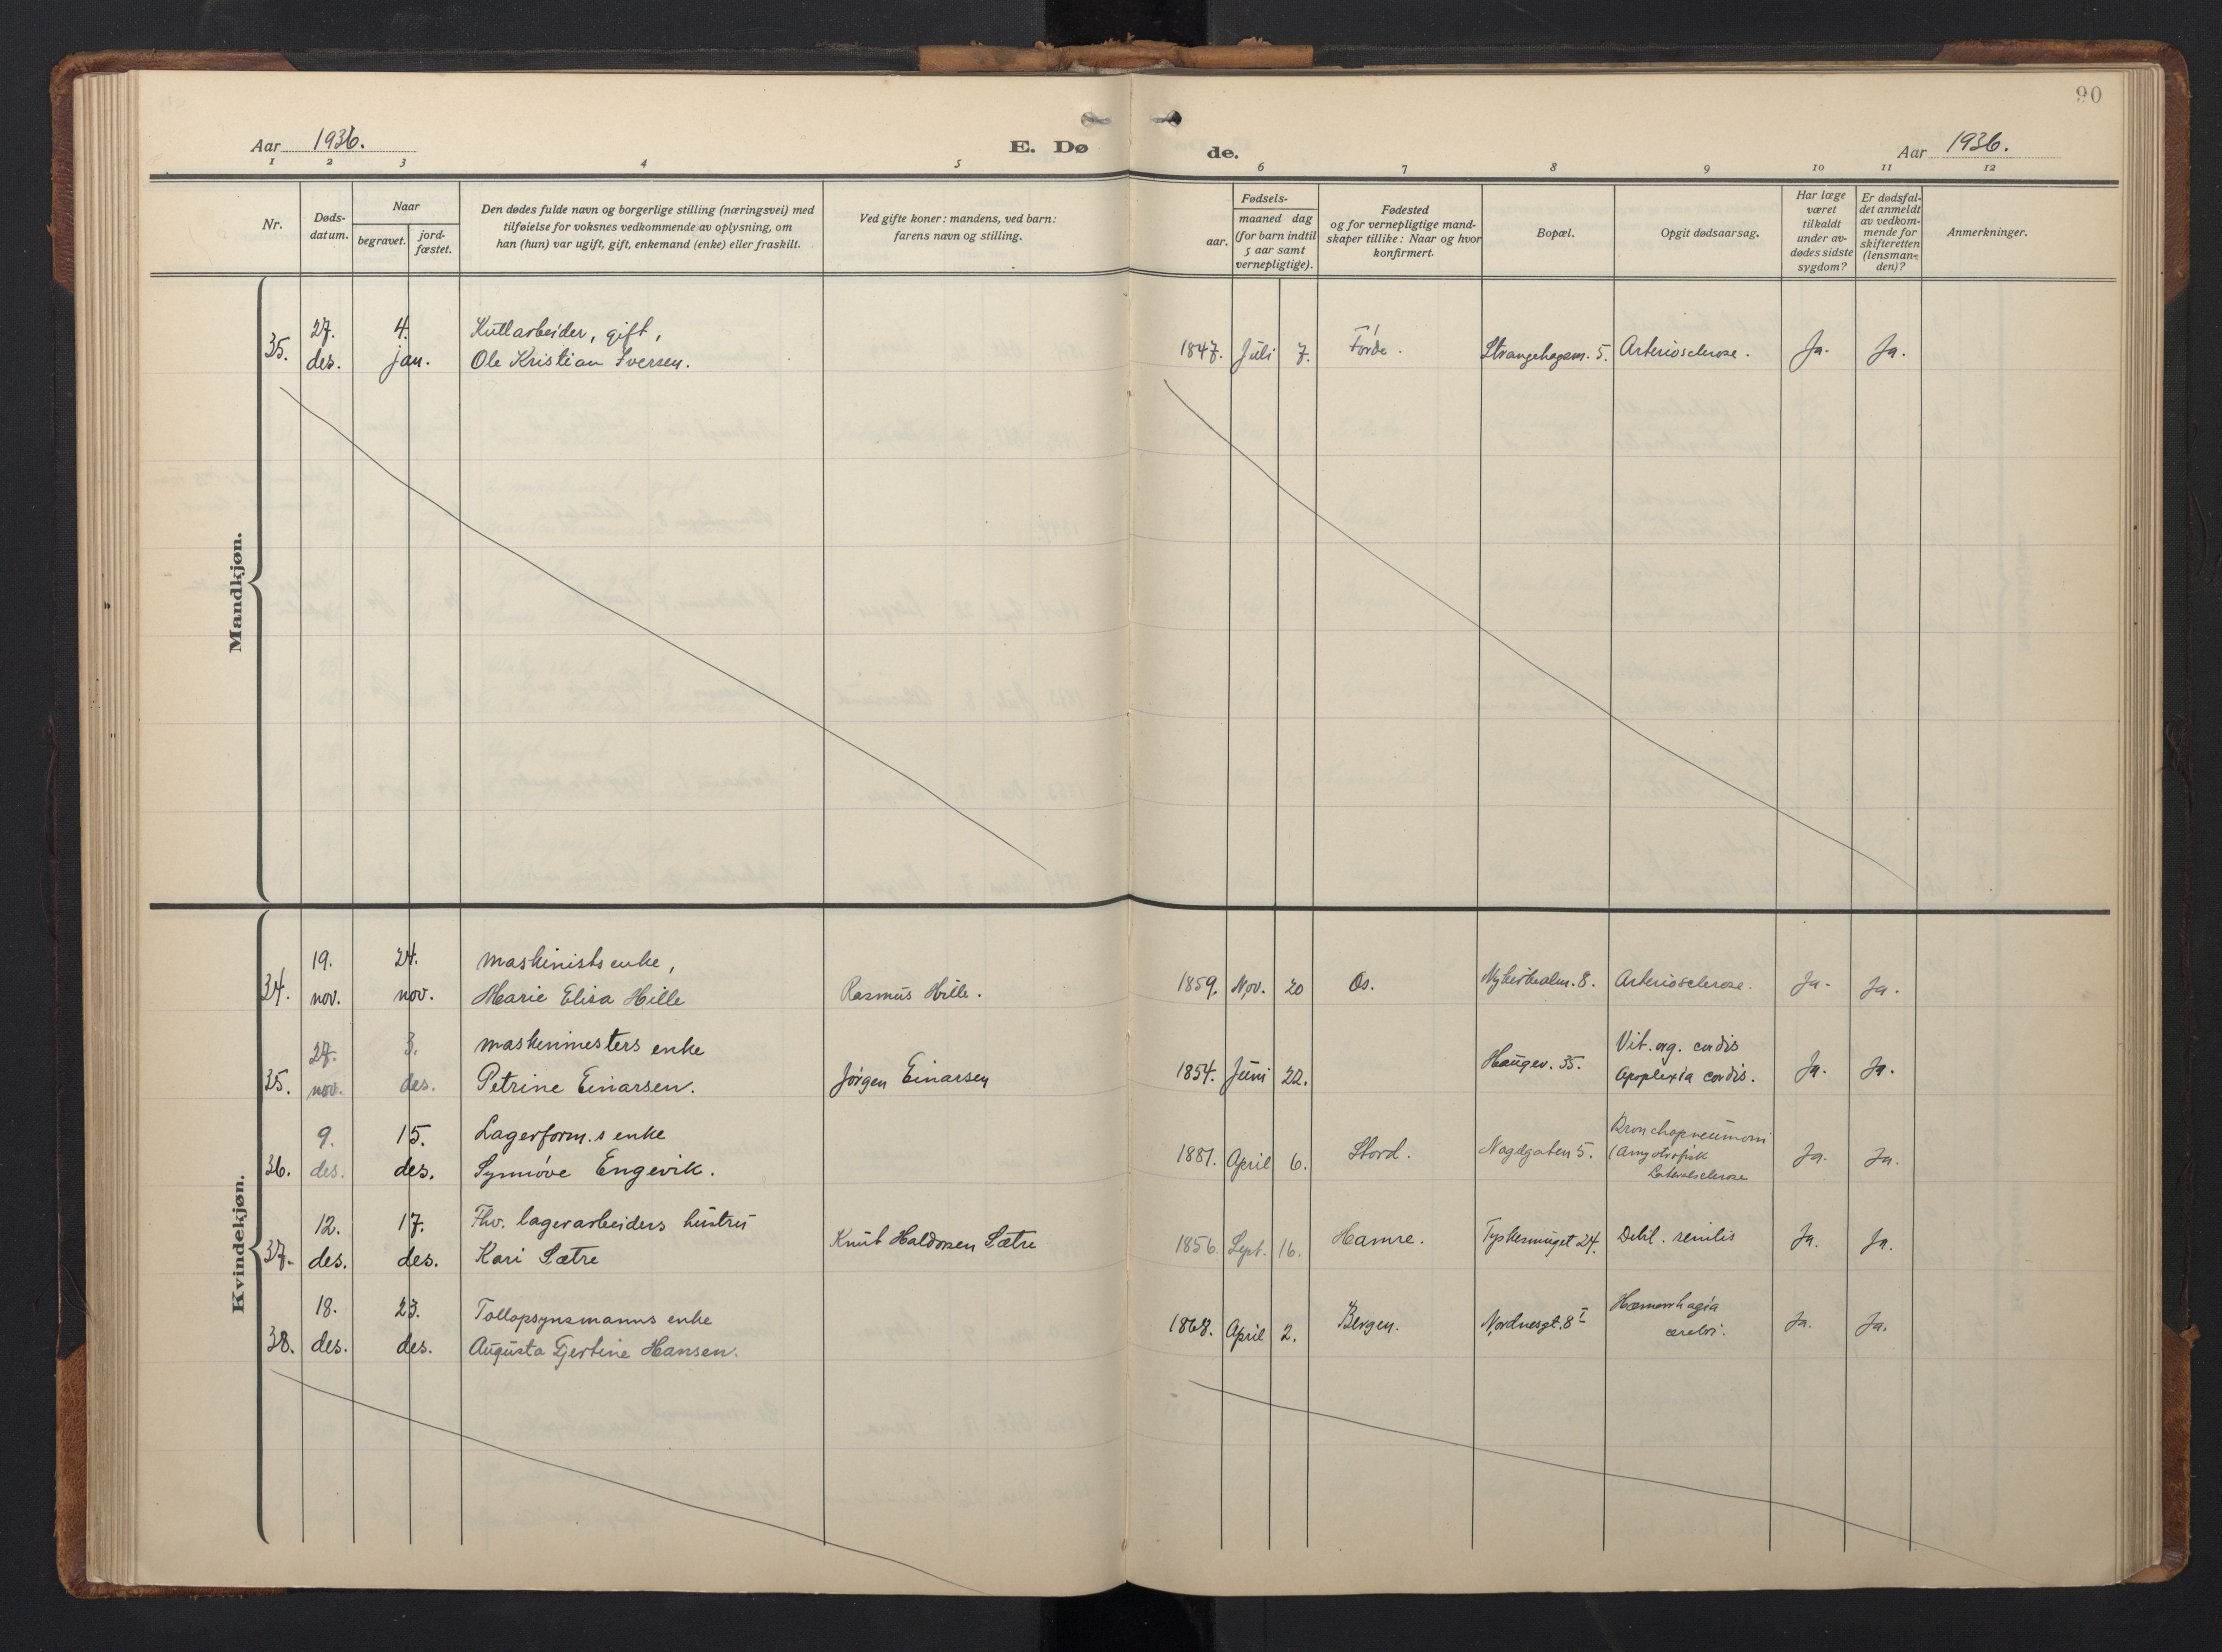 90
Aar 1936.
E. Dø de.
Aar 1936.
1 2 3 4 5 6 7 8 9 10 11 12
Nr.
Døds-
datum.
Naar
begravet.
jord-
fæstet.
Den dødes fulde navn og borgerlige stilling (næringsvei) med
tilføielse for voksnes vedkommende av oplysning, om
han (hun) var ugift, gift, enkemand (enke) eller fraskilt.
Ved gifte koner: mandens, ved barn:
farens navn og stilling.
Fødsels-
aar.
maaned dag
(for barn indtil
5 aar samt
vernepligtige).
Fødested
og for vernepligtige mand-
skaper tillike: Naar og hvor
konfirmert.
Bopæl.
Opgit dødsaarsag.
Har læge
været
tilkaldt
under av-
dødes sidste
sygdom?
Er dødsfal-
det anmeldt
av vedkom-
mende for
skifteretten
(lensman-
den)?
Anmerkninger.
Mandkjøn.
35.
27.
des.
4.
jan.
Kullarbeider, gift,
Ole Kristian Iversen.
1847. Juli 7.
Førde.
Strangehagem. 5.
Arteriosclerose.
Ja.
Ja.
Kvindekjøn.
34.
19.
nov.
24.
nov.
Maskinists enke,
Marie Elisa Hille
Rasmus Hille.
1859. Nov. 20
Os.
Nykirkealm. 8.
Arteriosclerose.
Ja.
Ja.
35.
27.
nov.
3.
des.
Maskinmesters enke
Petrine Einarsen.
Jørgen Einarsen
1854. Juni 22.
Haugev. 35.
Vit. org. cordis
Apoplexia cordis.
Ja.
Ja.
36.
9.
des.
15.
des.
Lagerform.s enke
Synnøve Engevik.
1881. April 6.
Stord.
5.
Bronchopneumoni
Lateralsclerose
Ja.
Ja.
37.
12.
des.
17.
des.
Fhv. lagerarbeiders hustru
Kari Sætre
Knut Haldorsen Sætre
1856. Sept. 16.
Hamre.
Tyskesmuget 24.
Debil. senilis
Ja.
Ja.
38.
18.
des.
23.
des.
Tollopsynsmanns enke
Augusta Gjertine Hansen.
1868. April 2.
Bergen.
Nordnesgt. 8 I
Hæmorrhagia
cerebri.
Ja.
Ja.